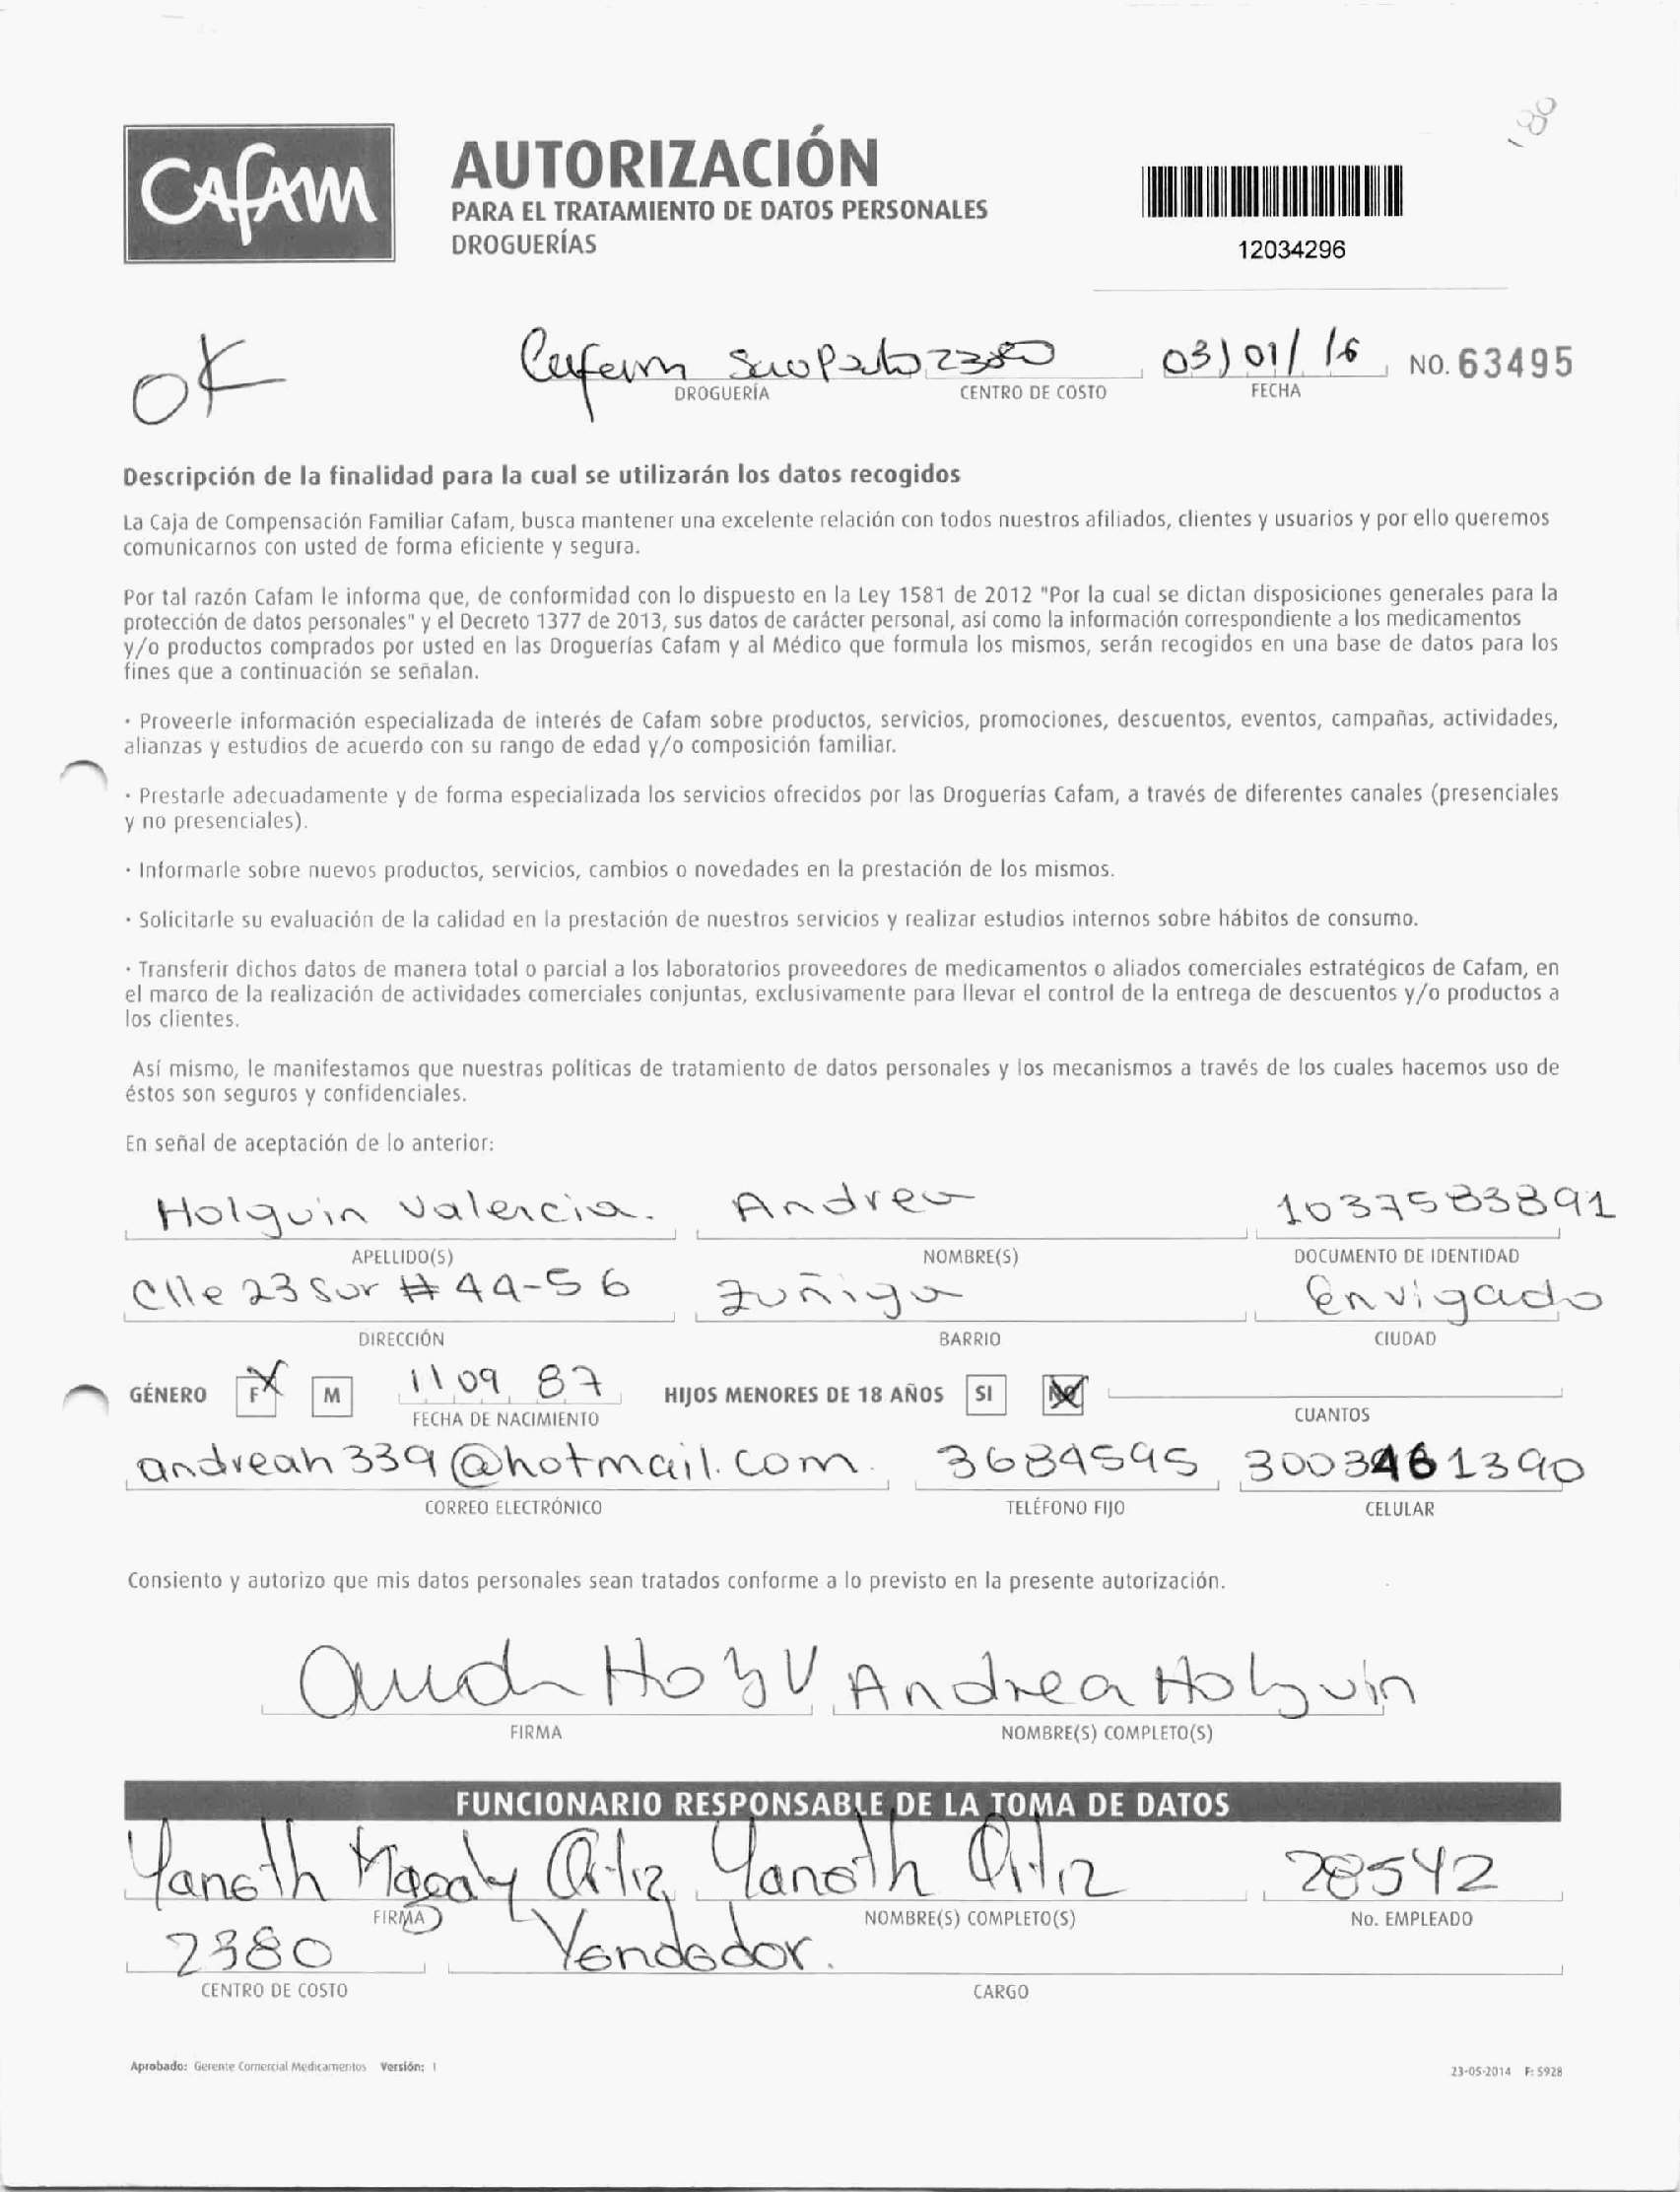 CAFAM
AUTORIZACIÓN
PARA EL TRATAMIENTO DE DATOS PERSONALES
DROGUERÍAS
12034296
OK
Cafam 2380 03/01/16 NO. 63495
DROGUERÍA CENTRO DE COSTO FECHA
Descripción de la finalidad para la cual se utilizarán los datos recogidos
La Caja de Compensación Familiar Cafam, busca mantener una excelente relación con todos nuestros afiliados, clientes y usuarios y por ello queremos
comunicarnos con usted de forma eficiente y segura.
Por tal razón Cafam le informa que, de conformidad con lo dispuesto en la Ley 1581 de 2012 "Por la cual se dictan disposiciones generales para la
protección de datos personales" y el Decreto 1377 de 2013, sus datos de carácter personal, así como la información correspondiente a los medicamentos
y/o productos comprados por usted en las Droguerías Cafam y al Médico que formula los mismos, serán recogidos en una base de datos para los
fines que a continuación se señalan.
· Proveerle información especializada de interés de Cafam sobre productos, servicios, promociones, descuentos, eventos, campañas, actividades,
alianzas y estudios de acuerdo con su rango de edad y/o composición familiar.
· Prestarle adecuadamente y de forma especializada los servicios ofrecidos por las Droguerías Cafam, a través de diferentes canales (presenciales
y no presenciales).
· Informarle sobre nuevos productos, servicios, cambios o novedades en la prestación de los mismos.
· Solicitarle su evaluación de la calidad en la prestación de nuestros servicios y realizar estudios internos sobre hábitos de consumo.
· Transferir dichos datos de manera total o parcial a los laboratorios proveedores de medicamentos o aliados comerciales estratégicos de Cafam, en
el marco de la realización de actividades comerciales conjuntas, exclusivamente para llevar el control de la entrega de descuentos y/o productos a
los clientes.
Así mismo, le manifestamos que nuestras políticas de tratamiento de datos personales y los mecanismos a través de los cuales hacemos uso de
éstos son seguros y confidenciales.
En señal de aceptación de lo anterior:
Holguin Valencia. Andrea 1037583891
APELLIDO(S) NOMBRE(S) DOCUMENTO DE IDENTIDAD
Clle 23 Sur # 44-56 Zuñiga Envigado
DIRECCIÓN BARRIO CIUDAD
GÉNERO F M 11 09 87 HIJOS MENORES DE 18 AÑOS SI NO
FECHA DE NACIMIENTO CUANTOS
andreah339@hotmail.com. 3684595 3003461390
CORREO ELECTRÓNICO TELÉFONO FIJO CELULAR
Consiento y autorizo que mis datos personales sean tratados conforme a lo previsto en la presente autorización.
Andrea Holguin
FIRMA NOMBRE(S) COMPLETO(S)
FUNCIONARIO RESPONSABLE DE LA TOMA DE DATOS
Yaneth Magaly Ortiz Yaneth Ortiz 28542
FIRMA NOMBRE(S) COMPLETO(S) No. EMPLEADO
2380 Vendedor.
CENTRO DE COSTO CARGO
Aprobado: Gerente Comercial Medicamentos Versión: 1 23-05-2014 F: 5928